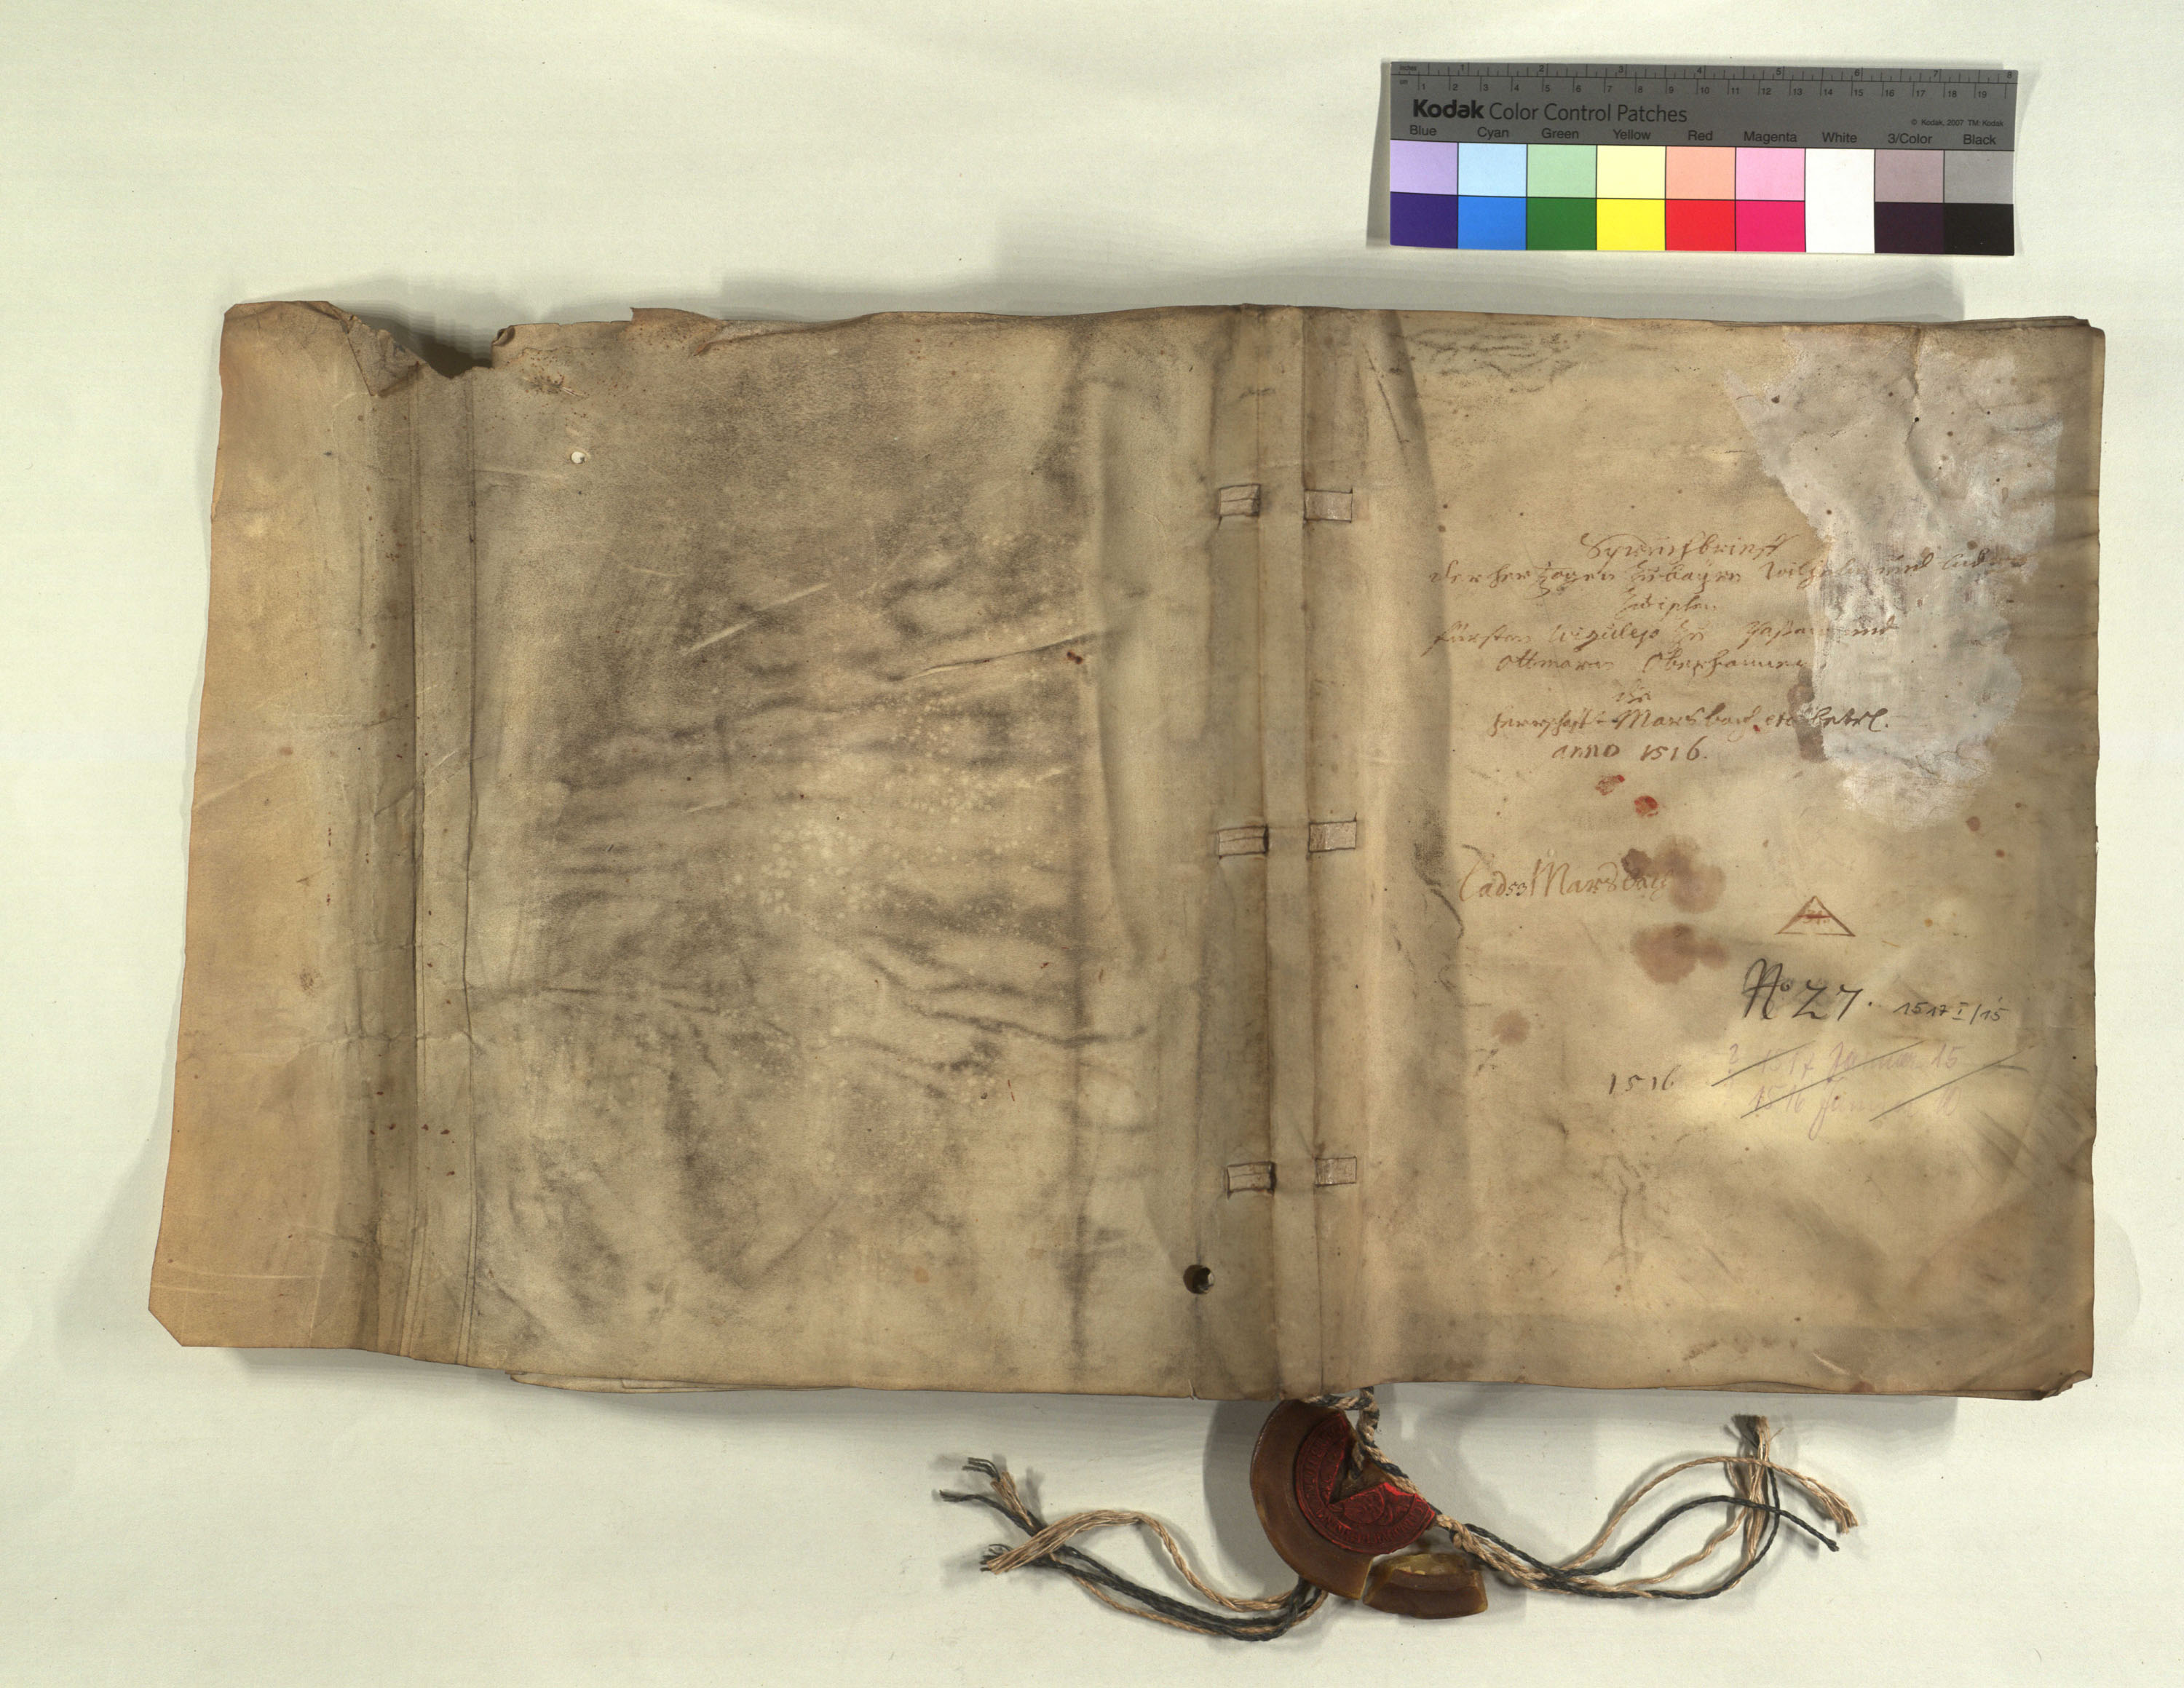 inches 1 2 3 4 5 6 7 8
cm 1 2 3 4 5 6 7 8 9 10 11 12 13 14 15 16 17 18 19
Kodak Color Control Patches
© Kodak, 2007 TM: Kodak
Blue Cyan Green Yellow Red Magenta White 3/Color Black
Spruchbrieff
der herzogen zu bayrn Wilhelm und Lud
zwischen
fürsten Wiguleyo zu Passau und
Ottmarn Oberhaimer
die
herrschafft Marsbach etc betrl.
anno 1516.
Marsbach
No 27. 1517 I/15
1516
? 1517 Januar 15
1516 10